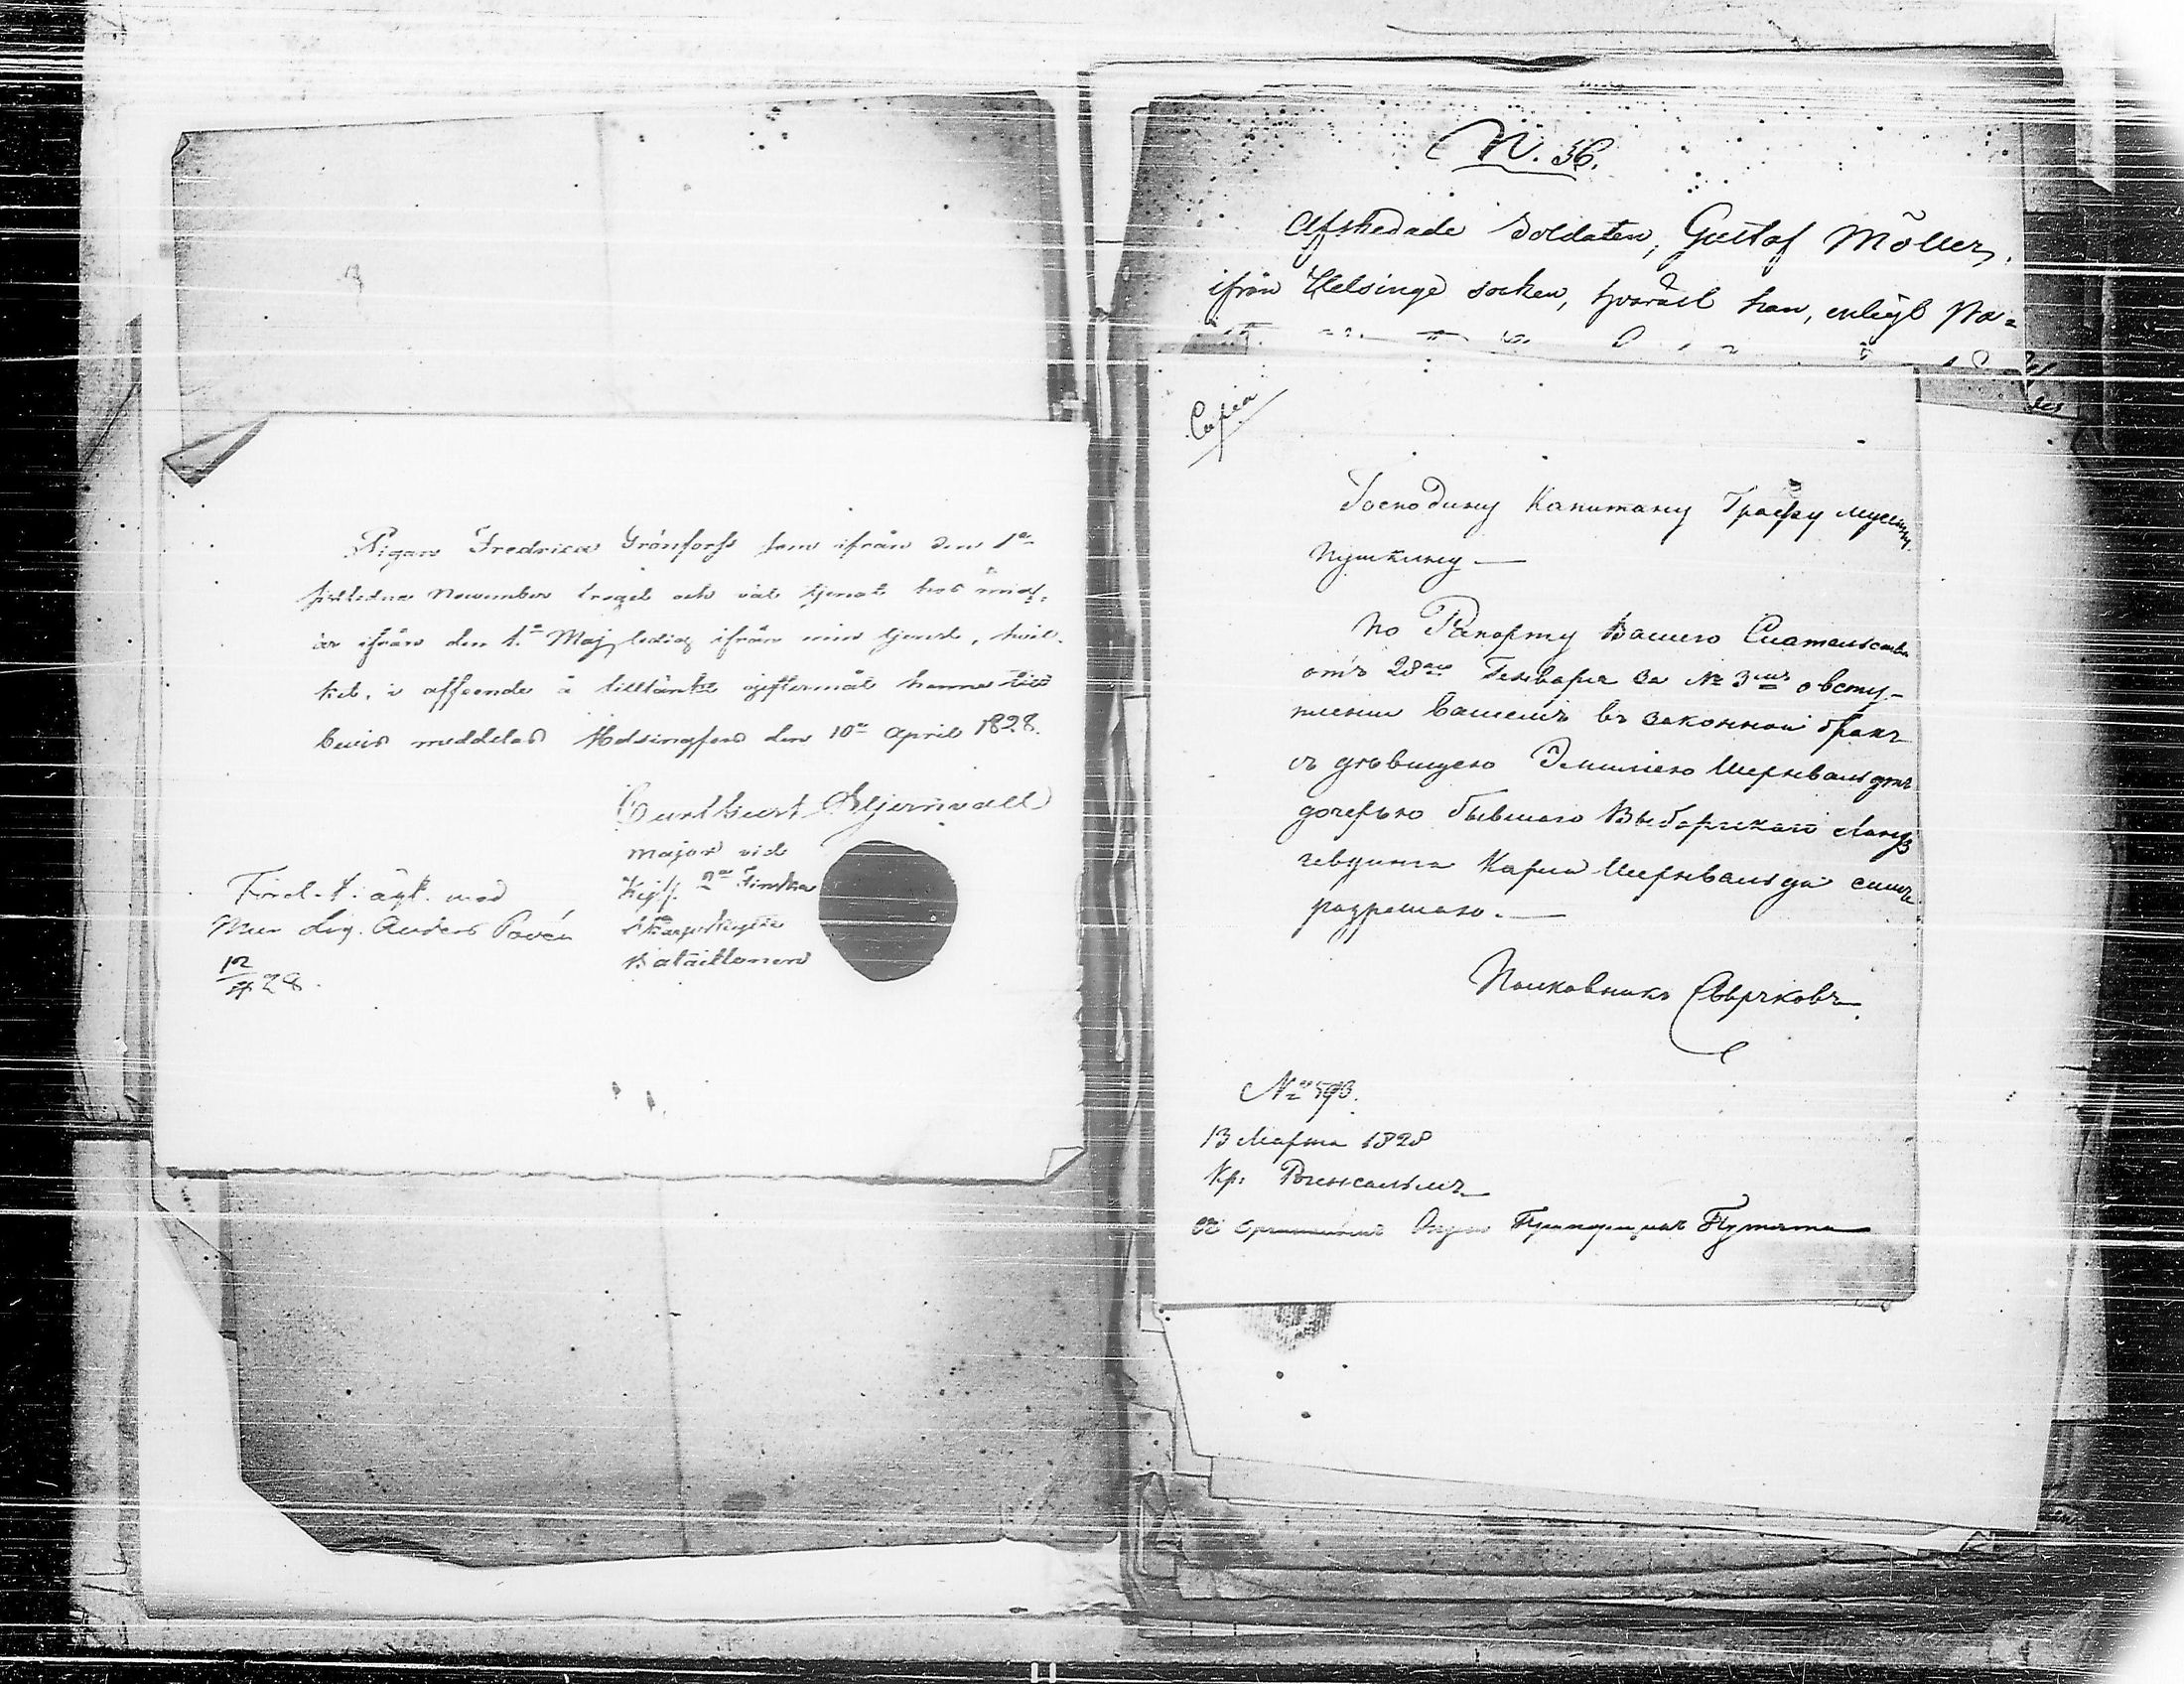 Pigan Fredrica Grönforss som ifrån den 1a
sistledne November troget och väl tjenat hos mig,
är ifrån den 1a Maj ledig ifrån min tjenst, hvil-
ket, i afseende å tilltänkt giftermål henne till
bevis meddelas Helsingfors den 10de April 1828.
Curt Gust Stjernvall
Major vid
Kejs. 2a Finska
Skarpskytte
Bataillonen
Förel. t. äkt. med
Mur Lig. Anders Pavén
12/4 28.
N. 56.
Afskedade Soldaten, Gustaf Möller,
ifrån Helsinge socken, hvaräst han, enligt Pa=
Copia
Господину Капитану Графу Мусину
Пушкину —
По Рапорту Вашего Сиятельства
отъ 28го Генваря за № 3мъ о всту-
плении Вашемъ въ законной бракъ
съ дѣвицею Эмилиею Шернвальдъ
дочерью бывшаго Выборгскаго Ланд
гевдинга Карла Шернвальда симъ
разрешаю. —
Полковникъ Сверчковъ
№ 593.
13 Марта 1828
Кр. Роченсальмъ